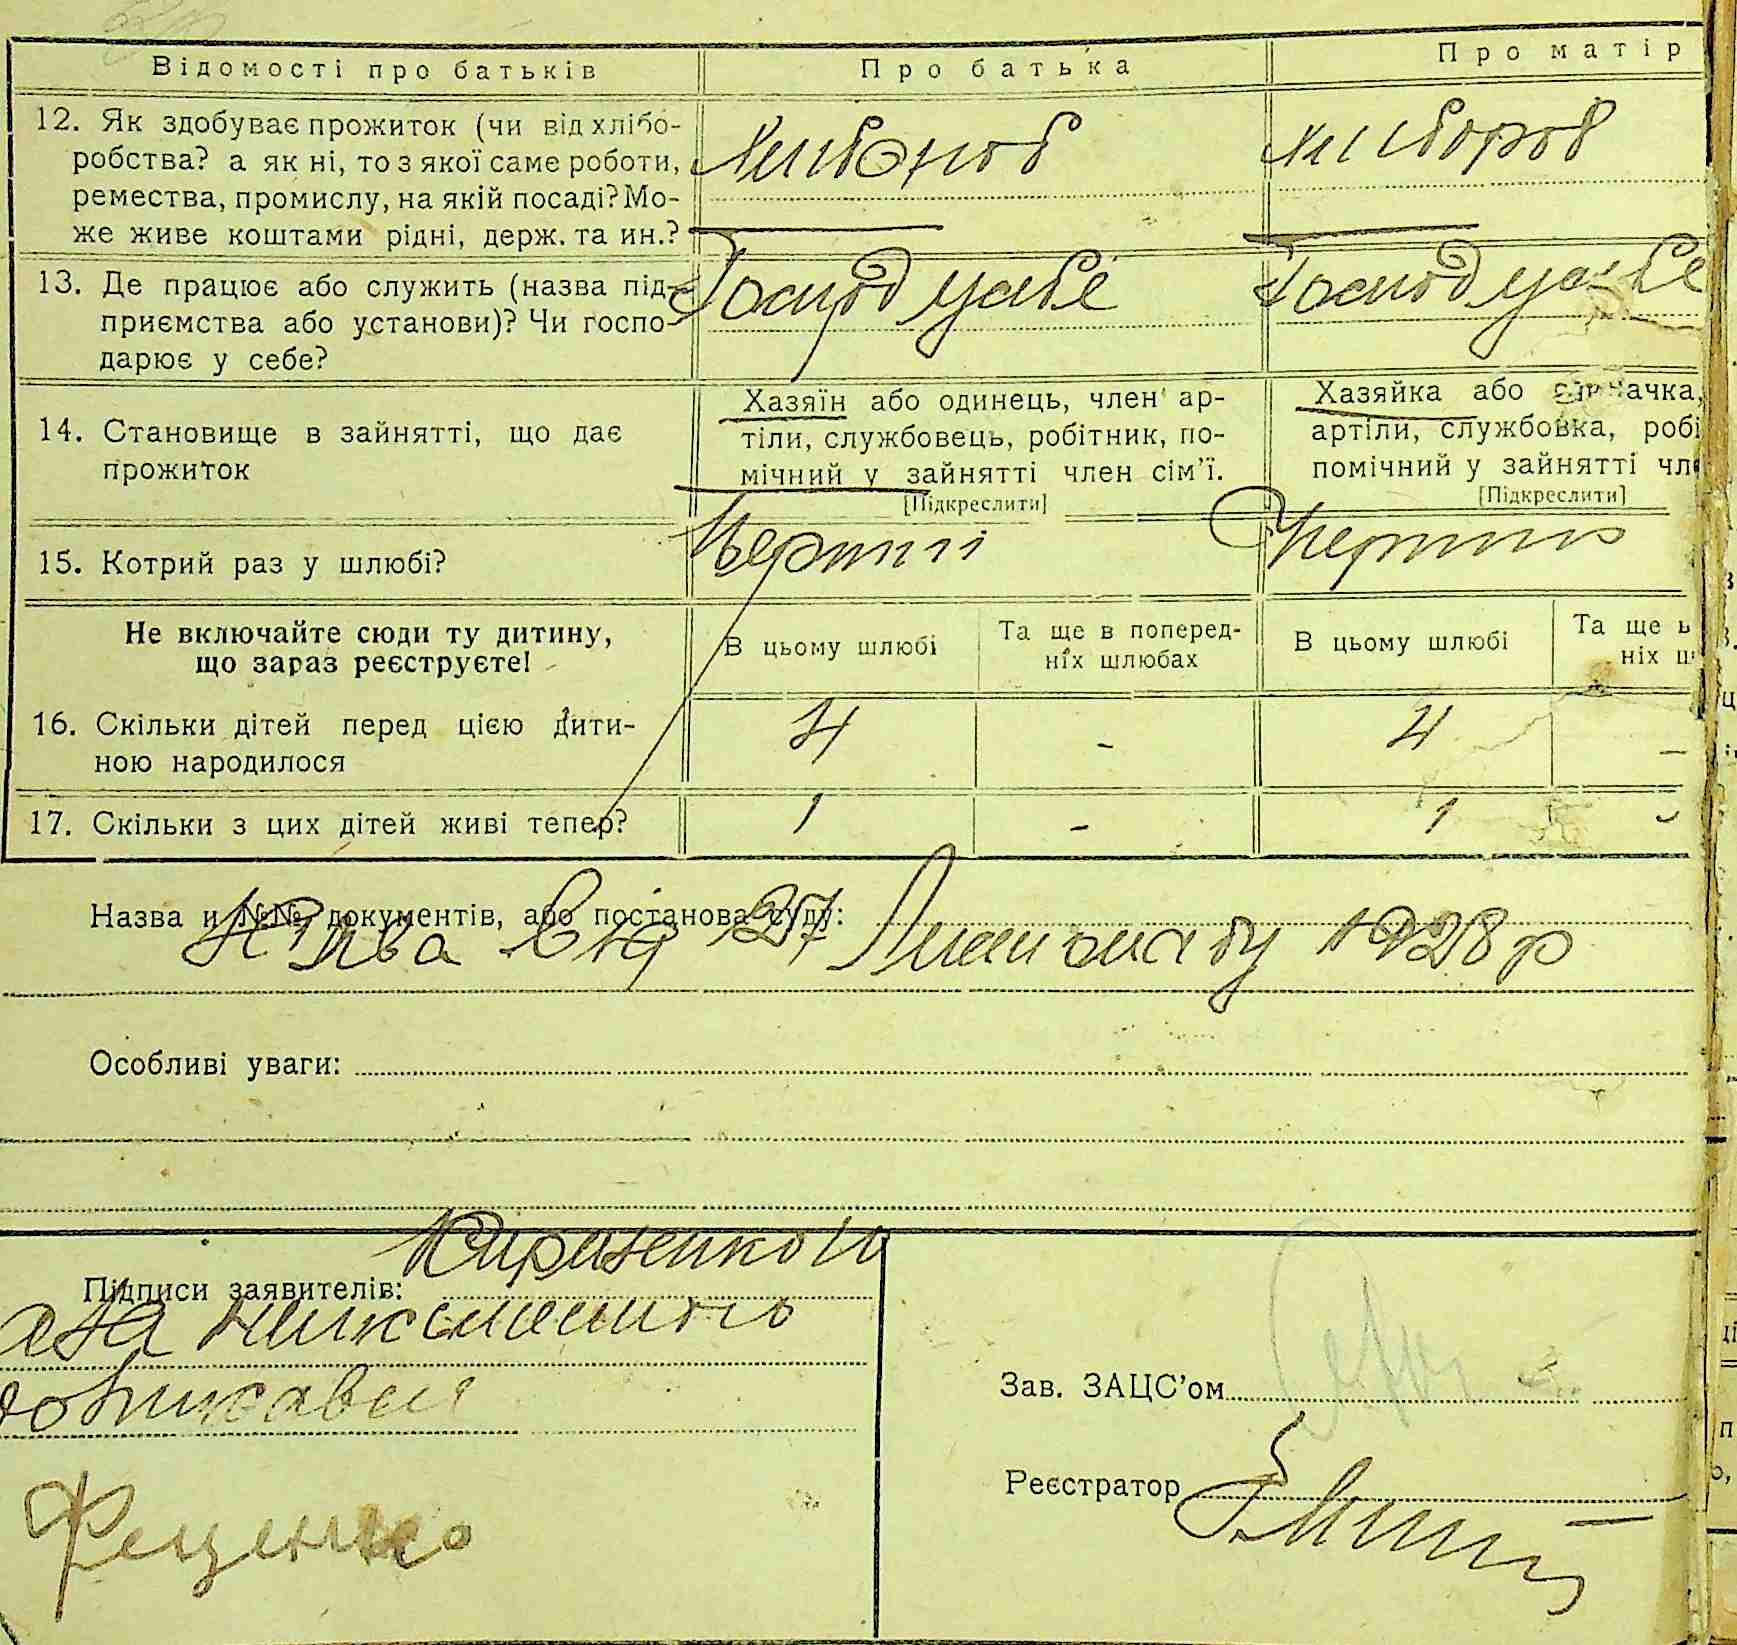 Відомості про батьків
Про батька
Про матір
12. Як здобуває прожиток (чи від хлібо-
робства? а як ні, то з якої саме роботи,
ремества, промислу, на якій посаді? Мо-
же живе коштами рідні, держ. та ин.?
13. Де працює або служить (назва під-
приємства або установи)? Чи госпо-
дарює у себе?
Господ у себе
Господ у себе
14. Становище в зайнятті, що дає
прожиток
Хазяїн або одинець, член ар-
тіли, службовець, робітник, по-
мічний у зайнятті член сім'ї.
[Підкреслити]
Хазяйка або одиначка,
артіли, службовка, робі
помічний у зайнятті чле
[Підкреслити]
15. Котрий раз у шлюбі?
Перший
Перший
Не включайте сюди ту дитину,
що зараз реєструєте!
В цьому шлюбі
Та ще в поперед-
ніх шлюбах
В цьому шлюбі
Та ще
ніх
16. Скільки дітей перед цією дити-
ною народилося
4
-
4
-
17. Скільки з цих дітей живі тепер?
1
-
1
-
Назва и №№ документів, або постанова суду:
від 27 Листопаду 1928 р
Особливі уваги:
Підписи заявителів:
Зав. ЗАЦС'ом
Реєстратор